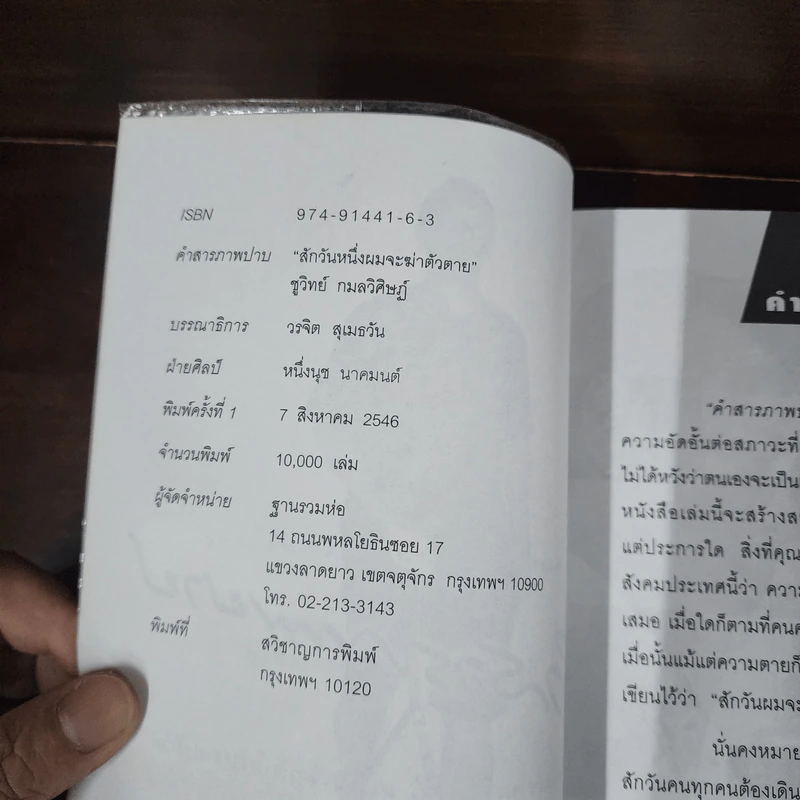 ISBN 974-91441-6-3
คำสารภาพบาป "สักวันหนึ่งผมจะฆ่าตัวตาย"
ชูวิทย์ กมลวิศิษฎ์
บรรณาธิการ วรจิต สุเมธวัน
ฝ่ายศิลป์ หนึ่งนุช นาคมนต์
พิมพ์ครั้งที่ 1 7 สิงหาคม 2546
จำนวนพิมพ์ 10,000 เล่ม
ผู้จัดจำหน่าย ฐานรวมห่อ
14 ถนนพหลโยธินซอย 17
แขวงลาดยาว เขตจตุจักร กรุงเทพฯ 10900
โทร. 02-213-3143
พิมพ์ที่ สวิชาญการพิมพ์
กรุงเทพฯ 10120
"คำสารภาพ
ความอัดอั้นต่อสภาวะที่
ไม่ได้หวังว่าตนเองจะเป็น
หนังสือเล่มนี้จะสร้าง
แต่ประการใด สิ่งที่คุณ
สังคมประเทศนี้ว่า ความ
เสมอ เมื่อใดก็ตามที่คน
เมื่อนั้นแม้แต่ความตายก็
เขียนไว้ว่า "สักวันผมจะ
นั่นคงหมาย
สักวันคนทุกคนต้องเดิน